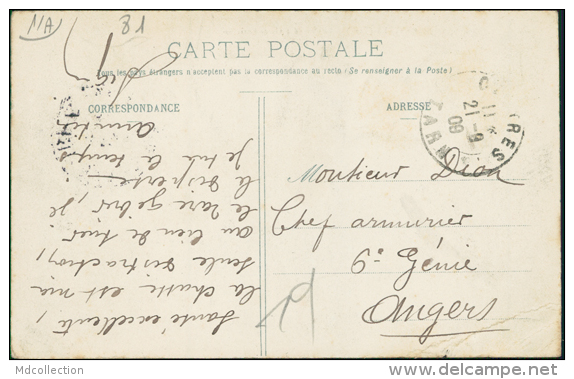 11A
81
CARTE POSTALE
Tous les pays étrangers n'acceptent pas la correspondance au recto (Se renseigner à la Poste)
CORRESPONDANCE
ADRESSE
Santé excellente,
la chasse est ma
seule distraction,
au lieu de tuer
le rare gibier, je
le disperse
Je tue le temps
Amitiés
RES
21-9
09
TARN
Monsieur Dion
Chef armurier
6e Génie
Angers
Mdcollection
www.delcampe.net